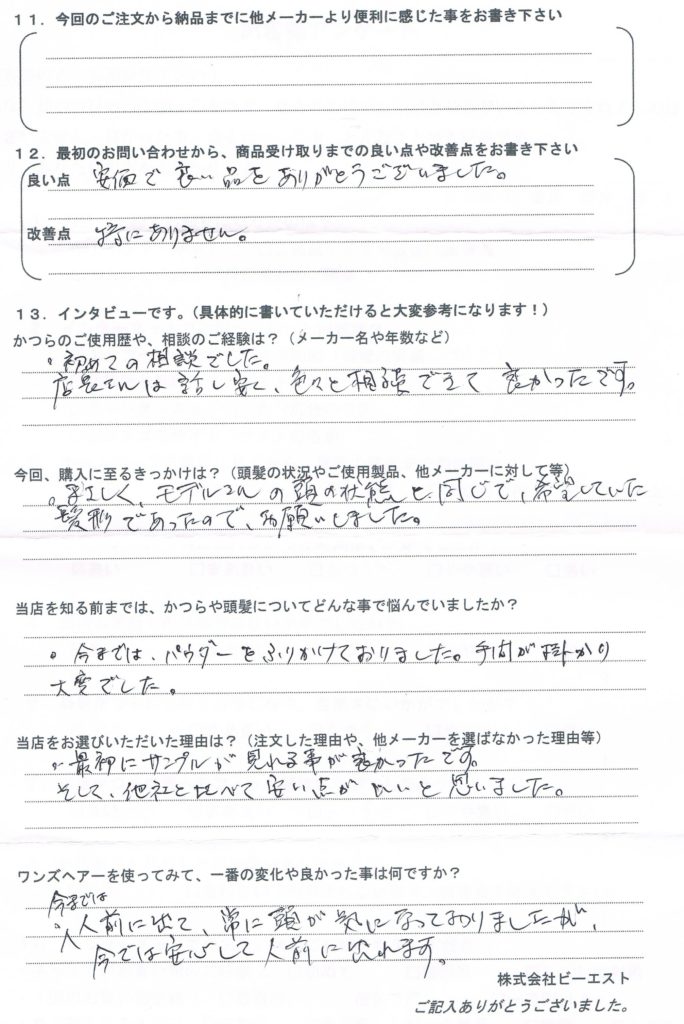 11．今回のご注文から納品までに他メーカーより便利に感じた事をお書き下さい
12．最初のお問い合わせから、商品受け取りまでの良い点や改善点をお書き下さい
良い点 安価で良い品をありがとうございました。
改善点 特にありません。
13．インタビューです。（具体的に書いていただけると大変参考になります！）
かつらのご使用歴や、相談のご経験は？（メーカー名や年数など）
・初めての相談でした。
店長さんは話し安く、色々と相談できて良かったです。
今回、購入に至るきっかけは？（頭髪の状況やご使用製品、他メーカーに対して等）
・正しく、モデルさんの頭の状態と同じで、希望していた
髪形であったので、お願いしました。
当店を知る前までは、かつらや頭髪についてどんな事で悩んでいましたか？
・今までは、パウダーをふりかけておりました。手間が掛かり
大変でした。
当店をお選びいただいた理由は？（注文した理由や、他メーカーを選ばなかった理由等）
・最初にサンプルが見れる事が良かったです。
そして、他社と比べて安い点が良いと思いました。
ワンズヘアーを使ってみて、一番の変化や良かった事は何ですか？
今までは
・人前に出て、常に頭が気になっておりましたが、
今では安心して人前に出れます。
株式会社ビーエスト
ご記入ありがとうございました。